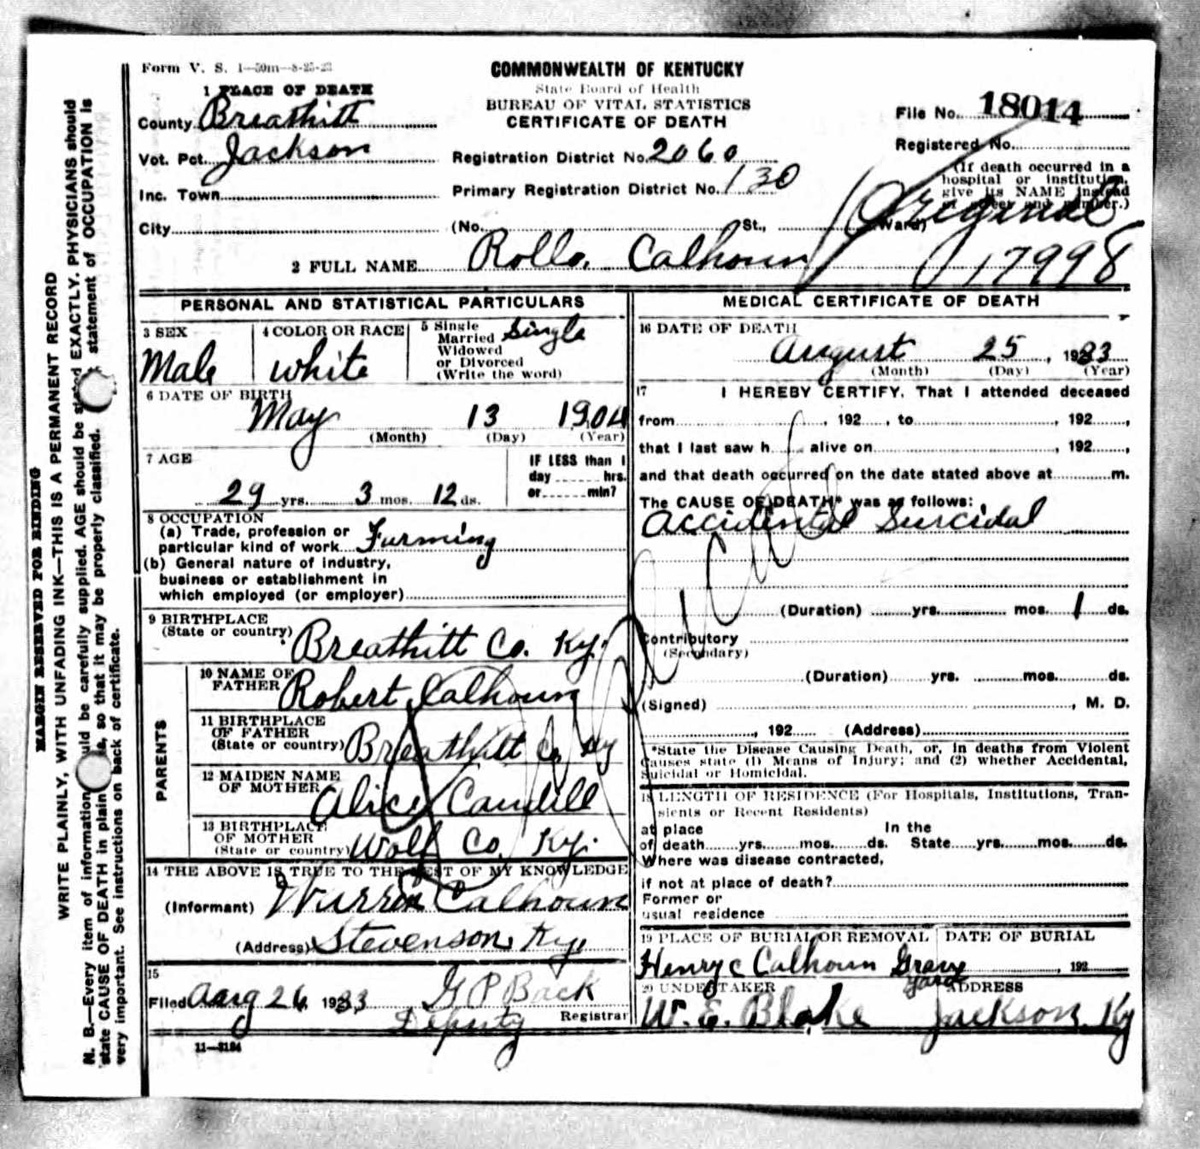 Form V. S. 1—50m—8-25-23
COMMONWEALTH OF KENTUCKY
State Board of Health
BUREAU OF VITAL STATISTICS
CERTIFICATE OF DEATH
File No. 18014
Registered No.
(If death occurred in a
hospital or institution,
give its NAME instead
of street and number.)
Original
17998
1 PLACE OF DEATH
County Breathitt
Vot. Pct. Jackson
Inc. Town
City
Registration District No. 2060
Primary Registration District No. 130
(No. St., Ward)
2 FULL NAME Rollo. Calhoun
PERSONAL AND STATISTICAL PARTICULARS
3 SEX
Male
4 COLOR OR RACE
White
5 Single
Married
Widowed
or Divorced
(Write the word)
Single
6 DATE OF BIRTH
May 13 1904
(Month) (Day) (Year)
7 AGE
29 yrs. 3 mos. 12 ds.
IF LESS than 1
day hrs.
or min?
8 OCCUPATION
(a) Trade, profession or
particular kind of work Farming
(b) General nature of industry,
business or establishment in
which employed (or employer)
9 BIRTHPLACE
(State or country) Breathitt Co. Ky.
PARENTS
10 NAME OF
FATHER Robert Calhoun
11 BIRTHPLACE
OF FATHER
(State or country) Breathitt Co Ky
12 MAIDEN NAME
OF MOTHER Alice Caudill
13 BIRTHPLACE
OF MOTHER
(State or country) Wolf Co, Ky.
14 THE ABOVE IS TRUE TO THE BEST OF MY KNOWLEDGE
(Informant) Warren Calhoun
(Address) Stevenson Ky,
15
Filed Aarg 26, 1933 G P Back
Deputy Registrar
11—3184
MEDICAL CERTIFICATE OF DEATH
16 DATE OF DEATH
August 25, 1933
(Month) (Day) (Year)
17 I HEREBY CERTIFY, That I attended deceased
from , 192 , to , 192 ,
that I last saw h alive on , 192 ,
and that death occurred on the date stated above at m.
The CAUSE OF DEATH* was as follows:
Accidental Suicidal
(Duration) yrs. mos. 1 ds.
Contributory
(Secondary)
(Duration) yrs. mos. ds.
(Signed) , M. D.
, 192 (Address)
*State the Disease Causing Death, or, in deaths from Violent
Causes state (1) Means of Injury; and (2) whether Accidental,
Suicidal or Homicidal.
18 LENGTH OF RESIDENCE (For Hospitals, Institutions, Tran-
sients or Recent Residents)
at place In the
of death yrs. mos. ds. State yrs. mos. ds.
Where was disease contracted,
if not at place of death?
Former or
usual residence
19 PLACE OF BURIAL OR REMOVAL DATE OF BURIAL
Henry c Calhoun Grave yard , 192
20 UNDERTAKER ADDRESS
W. E. Blake Jackson, Ky
Duplicate
MARGIN RESERVED FOR BINDING
WRITE PLAINLY, WITH UNFADING INK—THIS IS A PERMANENT RECORD
N. B.—Every item of information should be carefully supplied. AGE should be stated EXACTLY. PHYSICIANS should
state CAUSE OF DEATH in plain , so that it may be properly classified. statement of OCCUPATION is
very important. See instructions on back of certificate.